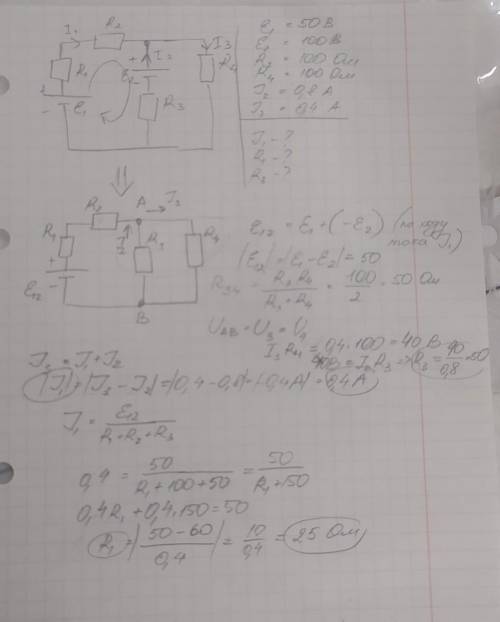 R2
I1
I2
I3
R1
+
E2
R4
-
R3
E1
-
E1 = 50 В
E2 = 100 В
R2 = 100 Ом
R4 = 100 Ом
I2 = 0,8 А
I3 = 0,4 А
I1 - ?
R1 - ?
R3 - ?
⇓
R2
A
I3
R1
R3
R4
+
E12
-
B
E12 = E1 + (-E2) (по ходу тока I1)
|E12| = |E1 - E2| = 50
= 100/2 = 50 Ом
UAB = U3 = U4
I3 R4 = 0,4 · 100 = 40 В
= I2 R3 ⇒ R3 = 40/0,8 = 50
I3 = I1 + I2
|I1| = |I3 - I2| = |0,4 - 0,8| = |-0,4А| = 0,4 А
I1 = E12/(R1 + R2 + R3)
0,4 = 50/(R1 + 100 + 50) = 50/(R1 + 150)
0,4R1 + 0,4 · 150 = 50
R1 = |(50 - 60)/0,4| = 10/0,4 = 25 Ом